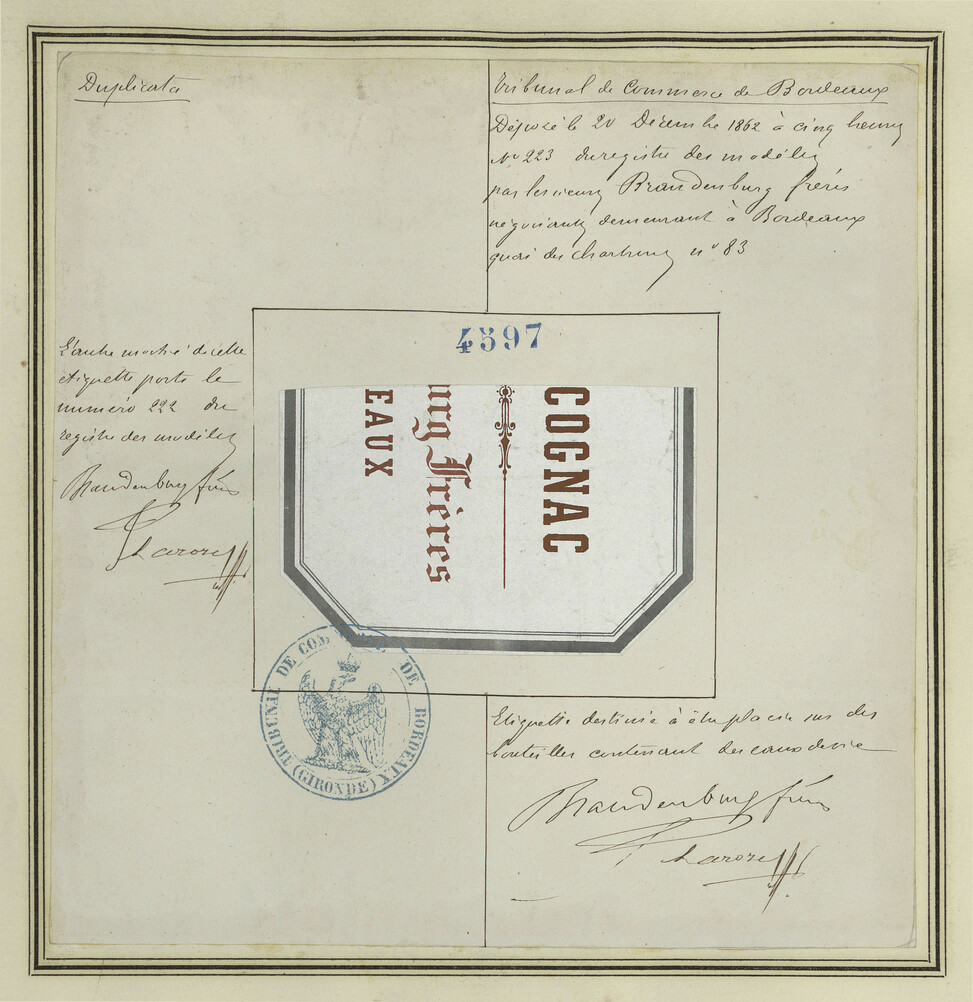 Duplicata
Tribunal de Commerce de Bordeaux
Déposé le 20 Décembre 1862 à cinq heures
N° 223 du registre des modèles
par les sieurs Brandenburg frères
négociants demeurant à Bordeaux
quai des Chartrons n° 83
4597
L'autre moitié de cette
etiquette porte le
numéro 222 du
registre des modèles
Brandenburg frères
COGNAC
urg Frères
EAUX
TRIBUNAL DE COMMERCE DE BORDEAUX
(GIRONDE)
Etiquette destinée à être placée sur des
bouteilles contenant des eaux de vie
Brandenburg frères